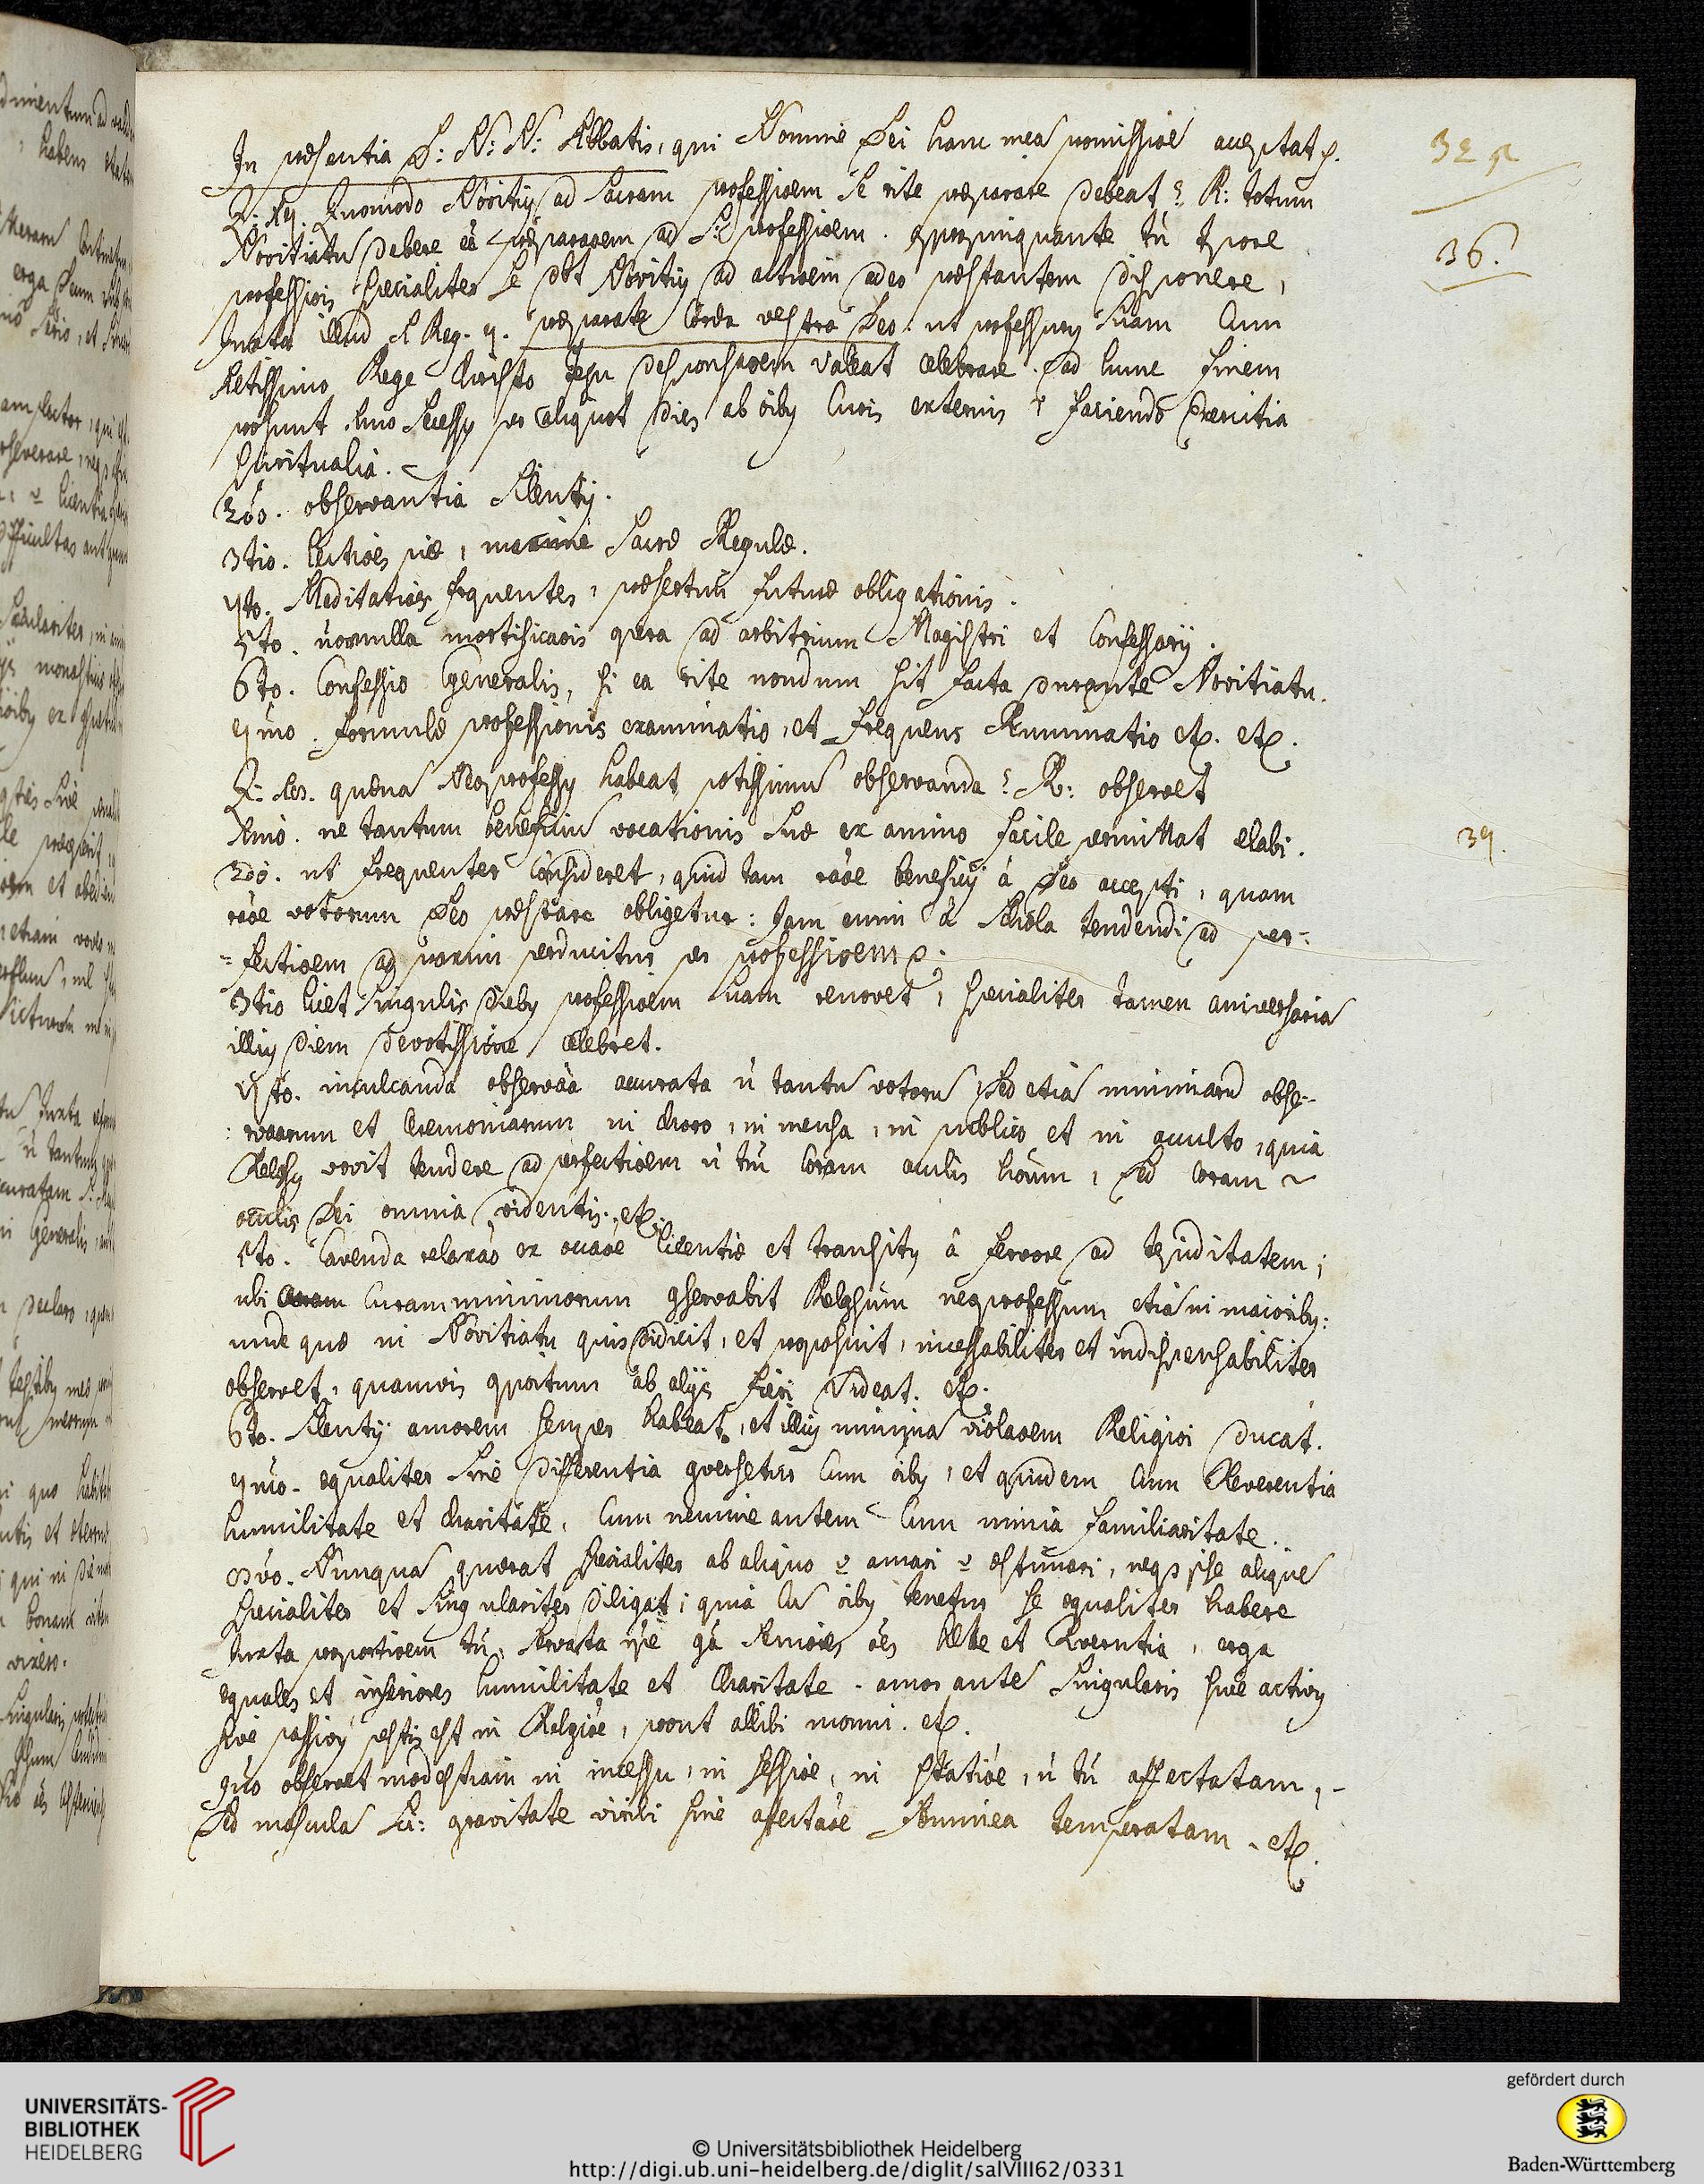 In præsentia D: N: N: Abbatis, qui Nomine Dei hanc meã promissioē acceptat
Quomodo Novitiꝯ ad sacram professioem se rite præparare debeat? R: totum
Novitiatũ debere eẽ præparaoem ad S: professioem. appropinquante tñ tpore
professiois specialiter se dbt Novitiꝯ ad actioem adeo præstantem disponere,
Juxta illud 1 Reg. 7. præparate Corda vestra Deo: ut professurꝯ suam Cum
Altissimo Rege Christo Jesu desponsaoem valeat celebrare. ad hunc finem
prosunt. 1mo Secessꝯ per aliquot dies ab oībꝯ Curis externis faciendo Exercitia
spiritualia.
2do. observantia silentij.
3tio. Lectioēs piæ, maximè Sacræ Regulæ.
4to. Meditatioēs frequentes, præsertim futuræ obligationis.
5to. nonnulla mortificaois opera ad arbitrium Magistri et Confessarij.
6to. Confessio Generalis, si ea rite nondum sit facta durante Novitiatu.
7mo. formulæ professionis examinatio, et frequens Ruminatio etc. etc.
quænã Neoprofessꝯ habeat potissimũ observanda? R: observet
1mò. ne tantum beneficiũ vocationis suæ ex animo facile permittat elabi.
2dò. ut frequenter Consideret, quid tam raõe beneficij à Deo accepti, quam
raõe votorum Deo præstare obligetur: Jam enim à Schola tendendi ad per-
=fectioem ad normam perducitur per professioem
3tio licet singulis diebꝯ professioem suam renovet, specialiter tamen aniversariã
illiꝯ diem devotissimè celebret.
4to. inculcanda observãa accurata ñ tantũ votorũ, sed etiã minimarũ obse-
:rvaarum et Ceremoniarum in choro, in mensa, in publico et in occulto, quia
vovit tendere ad perfectioem ñ tñ Coram oculis hoīum, sed Coram
oculis Dei omnia videntis. etc.
5to. Cavenda relaxaõ ex occaõe licentiæ et transitꝯ à fervore ad tepiditatem;
ubi Curam minimorum neoprofessum etiã in maioribꝯ:
unde quæ in Novitiatu quis didicit, et proposuit, incessabiliter et indispensabiliter
observet, quamvis oppositum ab alijs fieri videat. etc.
6to. Silentij amorem semper habeat, et illiꝯ minimã violaoem Religioi ducat.
7mo. equaliter sine differentia conversetur Cum oībꝯ, et quidem Cum Reverentia
humilitate et Charitate, Cum nemine autem Cum nimia familiaritate.
8vo. Nunquã quærat specialiter ab aliquo amari æstimari, neque ipse aliquẽ
specialiter et singulariter diligat; quia Cũ oībꝯ tenetur se equaliter habere
Juxta proportioem tñ, servata erga
equales et inferiores humilitate et Charitate. amor autẽ singularis sive activꝯ
sive passivꝯ pestis est in Religioē, prout alibi monui. etc.
9no observet modestiam in incessu, in sessioē, in statioē, ñ tñ affectatam,
sed masculã gravitate virili sine affectaõe fœminea temperatam. etc.
36.
39.
UNIVERSITÄTS-
BIBLIOTHEK
HEIDELBERG
© Universitätsbibliothek Heidelberg
http://digi.ub.uni-heidelberg.de/diglit/salVIII62/0331
gefördert durch
Baden-Württemberg